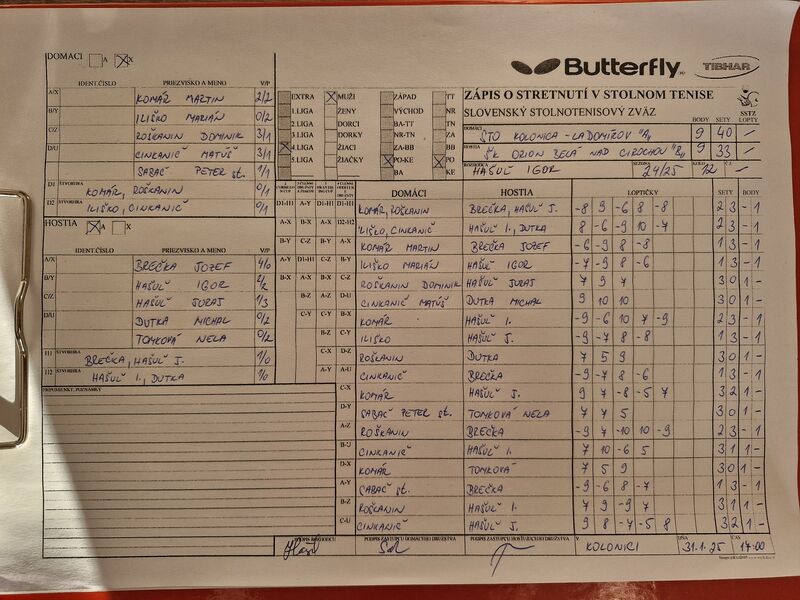 DOMÁCI A X
IDENT.ČÍSLO PRIEZVISKO A MENO V/P
A/X KOMÁR MARTIN 2/2
B/Y ILIŠKO MARIÁN 0/2
C/Z ROŠKANIN DOMINIK 3/1
D/U CINKANIČ MATÚŠ 3/1
SABAČ PETER st. 1/1
D1 ŠTVORHRA KOMÁR, ROŠKANIN 0/1
D2 ŠTVORHRA ILIŠKO, CINKANIČ 0/1
HOSTIA A X
IDENT.ČÍSLO PRIEZVISKO A MENO V/P
A/X BREČKA JOZEF 4/0
B/Y HAŠUĽ IGOR 2/2
C/Z HAŠUĽ JURAJ 1/3
D/U DUTKA MICHAL 0/2
TOMKOVÁ NELA 0/2
H1 ŠTVORHRA BREČKA, HAŠUĽ J. 1/0
H2 ŠTVORHRA HAŠUĽ I., DUTKA 1/0
PRIPOMIENKY, POZNÁMKY
Butterfly TIBHAR
EXTRA MUŽI ZÁPAD TT
1.LIGA ŽENY VÝCHOD NR
2.LIGA DORCI BA-TT TN
3.LIGA DORKY NR-TN ZA
4.LIGA ŽIACI ZA-BB BB
5.LIGA ŽIAČKY PO-KE PO
BA KE
ZÁPIS O STRETNUTÍ V STOLNOM TENISE
SLOVENSKÝ STOLNOTENISOVÝ ZVÄZ
SSTZ
BODY SETY LOPTY
DOMÁCI ŠTO KOLONICA - LADOMIROV "A" 9 40 -
HOSTIA ŠK ORION BELÁ NAD CIROCHOU "B" 9 33 -
ROZHODCA HAŠUĽ IGOR SEZÓNA 24/25 KOLO 12 Č. -
DOMÁCI HOSTIA LOPTIČKY SETY BODY
D1-H1 A-Y D1-H1 D1-H1 KOMÁR, ROŠKANIN BREČKA, HAŠUĽ J. -8 9 -6 8 -8 2 3 - 1
A-X B-X A-X D2-H2 ILIŠKO, CINKANIČ HAŠUĽ I., DUTKA 8 -6 -9 10 -7 2 3 - 1
B-Y C-Z B-Y A-X KOMÁR MARTIN BREČKA JOZEF -6 9 -8 -8 1 3 - 1
A-Y D1-H1 C-Z B-Y ILIŠKO MARIÁN HAŠUĽ IGOR -7 -9 8 -6 1 3 - 1
B-X A-X B-X C-Z ROŠKANIN DOMINIK HAŠUĽ JURAJ 7 9 7 3 0 1 -
B-Z A-Z D-U CINKANIČ MATÚŠ DUTKA MICHAL 9 10 10 3 0 1 -
C-Y C-Y B-X KOMÁR HAŠUĽ I. -9 -6 10 7 -9 2 3 - 1
B-Z C-Y ILIŠKO HAŠUĽ J. -9 -7 8 -8 1 3 - 1
C-X D-Z ROŠKANIN DUTKA 7 5 9 3 0 1 -
A-Y A-U CINKANIČ BREČKA -9 -7 8 -6 1 3 - 1
C-X KOMÁR HAŠUĽ J. 9 7 -8 -5 7 3 2 1 -
D-Y SABAČ PETER st. TOMKOVÁ NELA 7 7 5 3 0 1 -
A-Z ROŠKANIN BREČKA -9 7 -10 10 -9 2 3 - 1
B-U CINKANIČ HAŠUĽ I. 7 10 -6 5 3 1 1 -
D-X KOMÁR TOMKOVÁ 7 5 9 3 0 1 -
A-Y SABAČ st. BREČKA -9 -6 8 -7 1 3 - 1
B-Z ROŠKANIN HAŠUĽ I. 7 9 -9 7 3 1 1 -
C-U CINKANIČ HAŠUĽ J. 9 8 -7 -5 8 3 2 1 -
PODPIS ROZHODCU PODPIS ZÁSTUPCU DOMÁCEHO DRUŽSTVA PODPIS ZÁSTUPCU HOSŤUJÚCEHO DRUŽSTVA V KOLONICI DŇA 31.1.25 ČAS 17:00